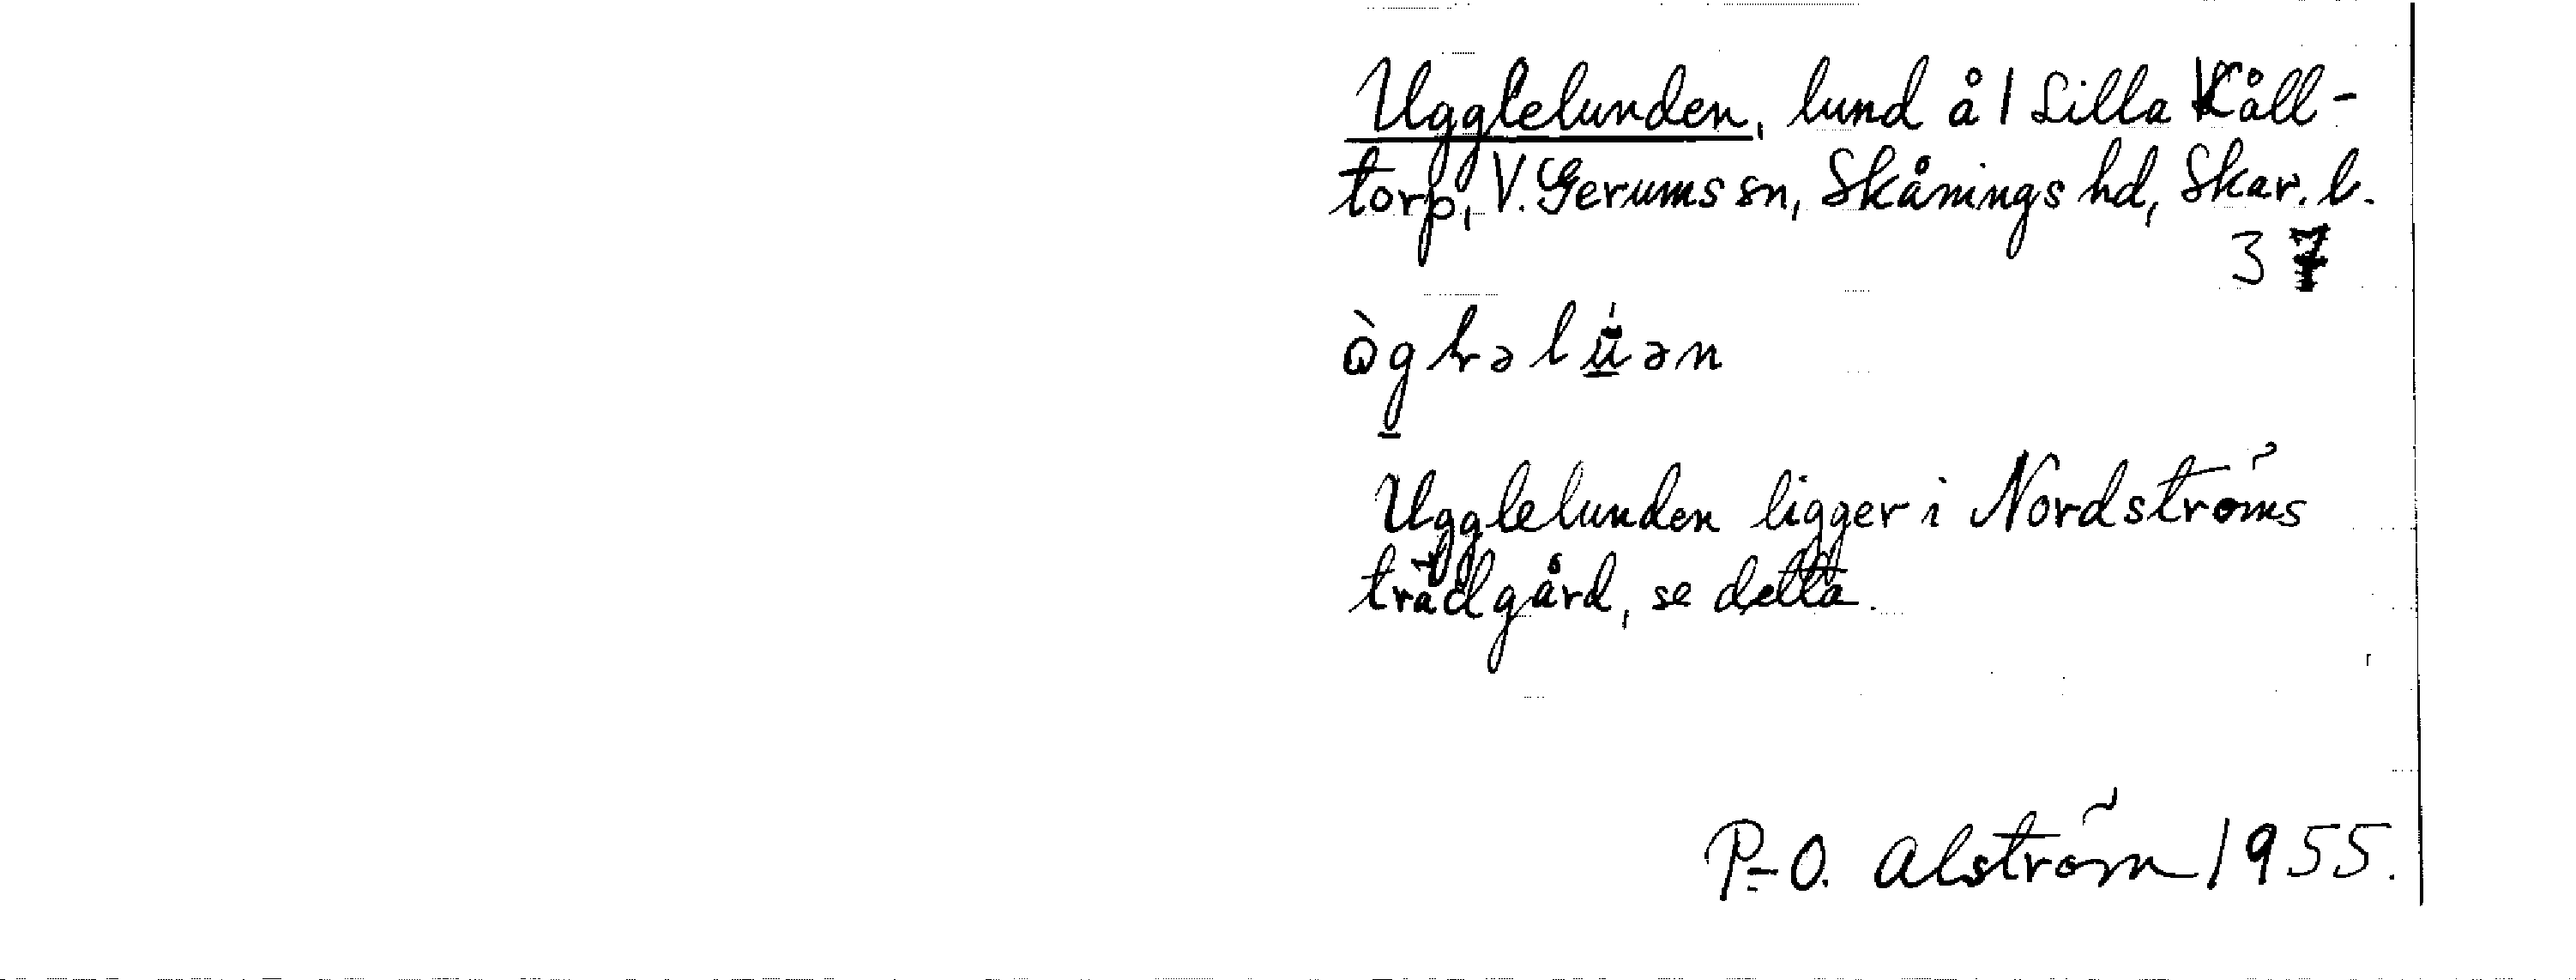 Ugglelunden, lund å 1 Lilla Kåll-
torp, V. Gerums sn, Skånings hd, Skar. l.
37
Ugglelunden ligger i Nordströms
trädgård, se detta.
P-O. Alström 1955.